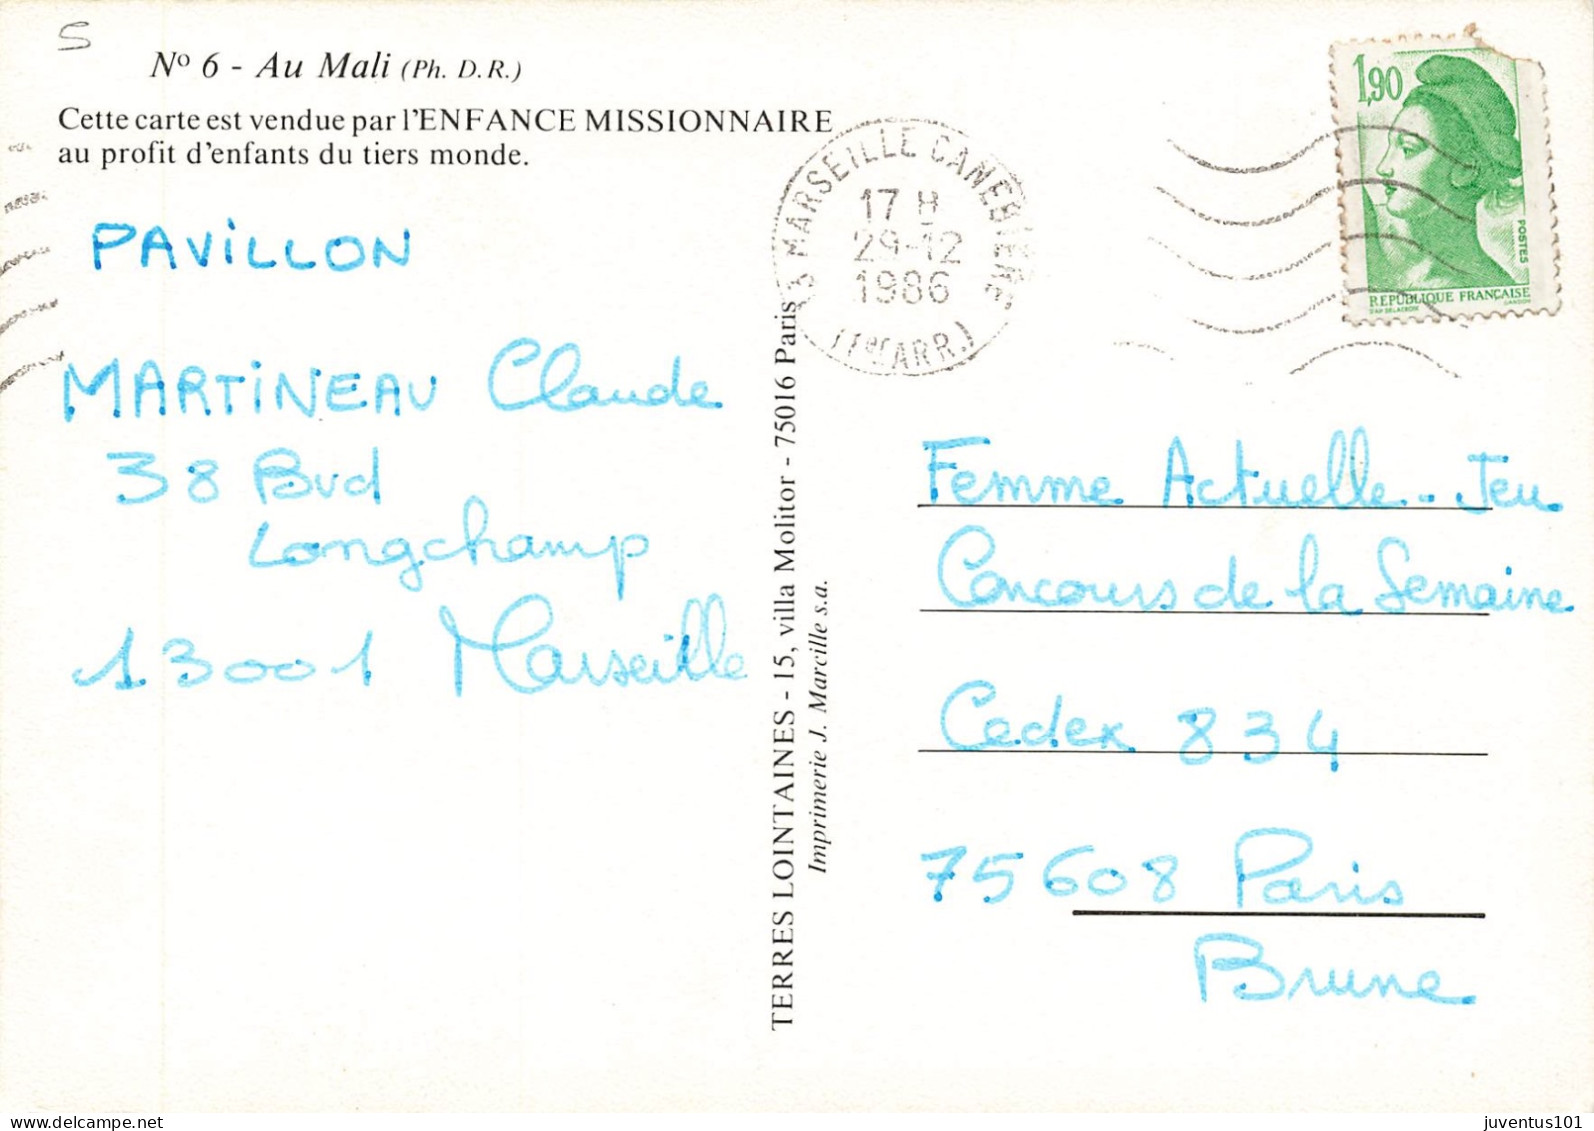 S
Nº 6 - Au Mali (Ph. D.R.)
Cette carte est vendue par l'ENFANCE MISSIONNAIRE
au profit d'enfants du tiers monde.
PAViLLON
MARTiNEAU Claude
38 Bvd
Longchamp
13001 Marseille
TERRES LOINTAINES - 15, villa Molitor - 75016 Paris
Imprimerie J. Marcille s.a.
13 MARSEILLE CANEBIERE
17 H
29-12
1986
(1erARR.)
1,90
POSTES
REPUBLIQUE FRANÇAISE
D'AP DELACROIX
GANDON
Femme Actuelle - Jeu
Concours de la Semaine
Cedex 834
75608 Paris
Brune
juventus101